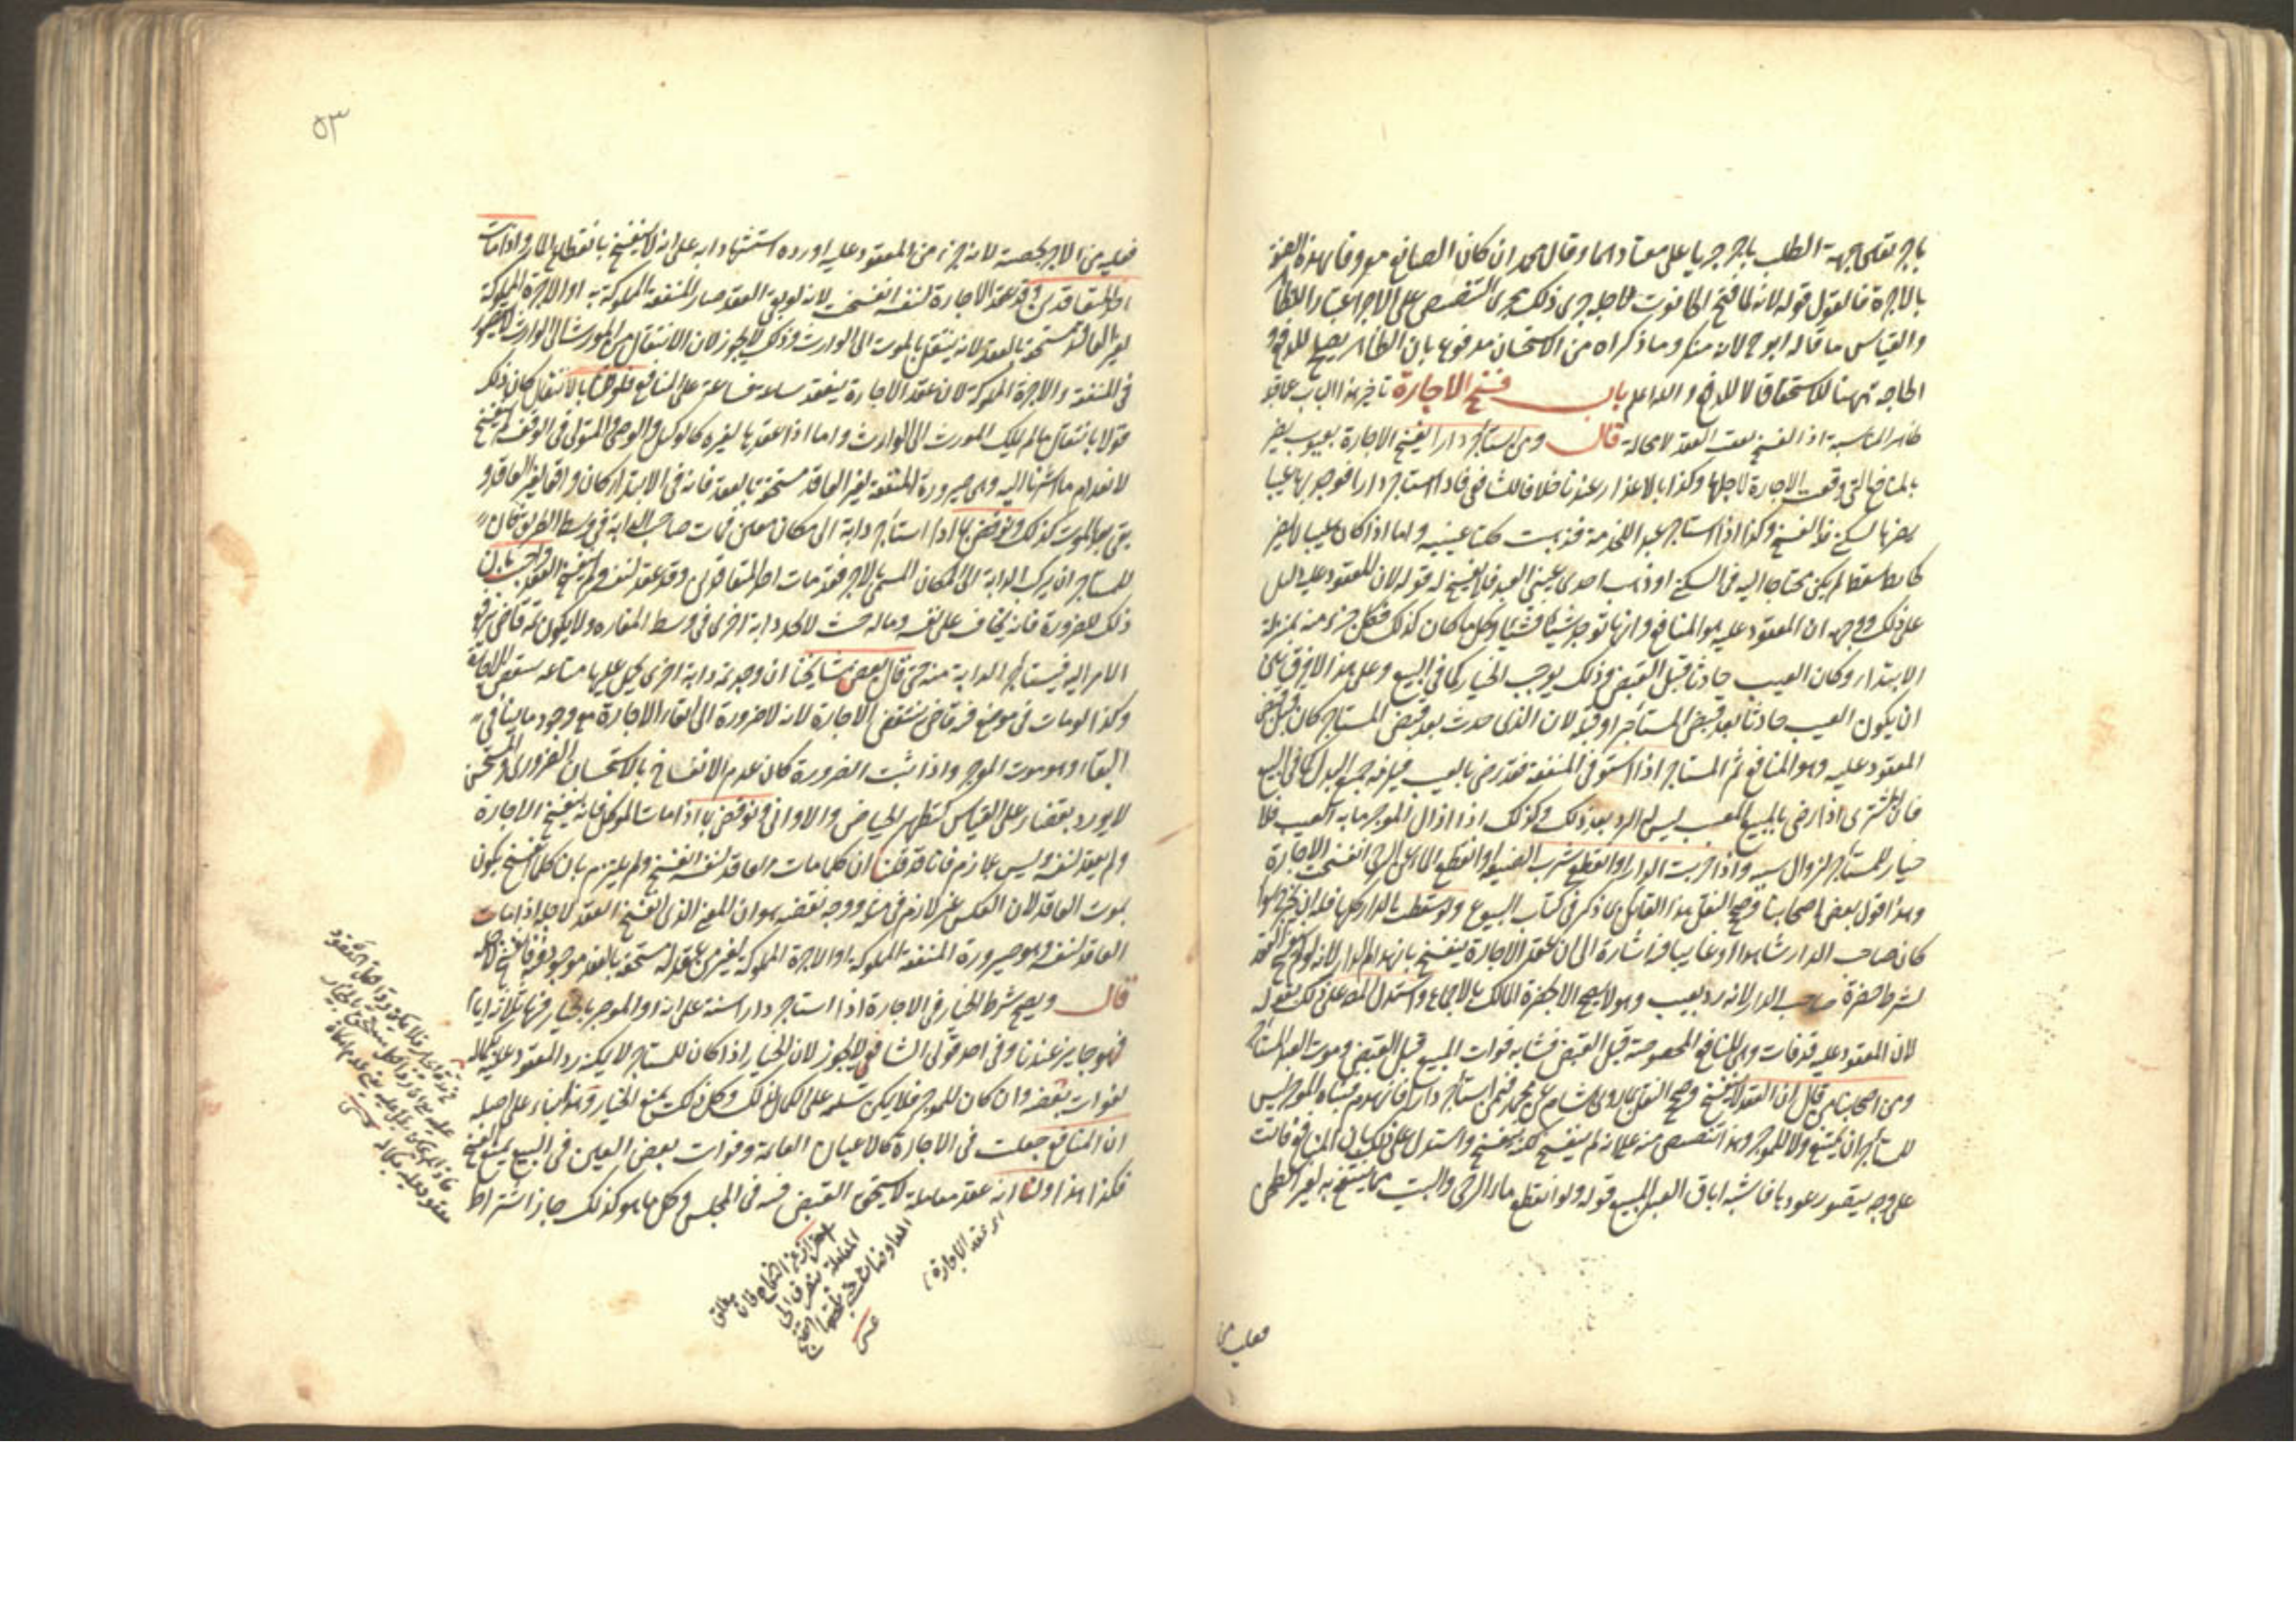 باجر بقى جهة الطلب باجر جريا على معتادهما وقال محمد ان كان الصانع معروفا بهذه الصنعة
بالاجرة فالقول قوله لانه لما فتح الحانوت لاجله جرى ذلك مجرى التنصيص على الاجر اعتبارا للظاهر
والقياس ما قاله ابو ح لانه منكر وما ذكراه من الاستحسان مدفوع بان الظاهر يصلح للدفع و
الحاجة ههنا للاستحقاق لا للدفع والله اعلم باب فسخ الاجارة تاخير هذا الباب عما قبله
ظاهر المناسبة اذ الفسخ يعقب العقد لا محالة قال ومن استاجر دارا يفسخ الاجارة بعيوب يضر
بالمنافع التي وقعت الاجارة لاجلها وكذا بالاعذار عندنا خلافا للشافعي فاذا استاجر دارا فوجد بها عيبا
يضر بالسكنى فله الفسخ وكذا اذا استاجر عبدا للخدمة فذهبت كلتا عينيه واما اذا كان عيبا لا يضر
كحائط سقط لم يكن محتاجا اليه في السكنى او ذهب احدى عيني العبد فلا يفسخ له قوله لان المعقود عليه دليل
على ذلك ووجهه ان المعقود عليه هو المنافع وانها توجد شيئا فشيئا وكل ما كان كذلك فكل جزء منه بمنزلة
الابتداء وكان العيب حادثا قبل القبض وذلك يوجب الخيار كما في البيع وعلى هذا لا فرق بين
ان يكون العيب حادثا بعد قبض المستاجر او قبله لان الذي حدث بعد قبض المستاجر كان قبل قبض
المعقود عليه وهو المنافع ثم المستاجر اذا استوفى المنفعة فقد رضي بالعيب فيلزمه جميع البدل كما في البيع
فان المشتري اذا رضي بالمبيع المعيب ليس له الرد بعد ذلك وكذلك اذا ازال الموجر ما به العيب فلا
خيار للمستاجر لزوال سببه واذا خربت الدار او انقطع شرب الضيعة او انقطع الماء عن الرحى انفسخت الاجارة
وهذا قول بعض اصحابنا وصح النقل بهذا القائل بما ذكر في كتاب البيوع ولو سقطت الدار كلها فله ان يخرج سواء
كان صاحب الدار شاهدا او غايبا وفيه اشارة الى ان عقد الاجارة ينفسخ بانهدام الدار لانه لو لم ينفسخ العقد
لشرط حضرة صاحب الدار لانه رد بعيب وهو لا يصح الا بحضرة المالك بالاجماع واستدل المص على ذلك بقوله
لان المعقود عليه قد فات وهي المنافع المخصوصة قبل القبض فشابه فوات المبيع قبل القبض وموت العبد المستاجر
ومن اصحابنا من قال ان العقد لا ينفسخ وصح النقل بما روى هشام عن محمد فيمن استاجر دارا فانهدم فبناه الموجر ليس
للمستاجر ان يمتنع ولا للموجر وهذا تنصيص منه على انه لم ينفسخ لكنه يفسخ واستدل على ذلك بان المنافع فاتت
على وجه يتصور عودها فاشبه اباق العبد المبيع قوله ولو انقطع ماء الرحى والبيت مما ينتفع به لغير الطحن
فعليه من
٥٣
فعليه من الاجر بحصته لانه جزء من المعقود عليه اورده استشهادا به على انه لا ينفسخ بانقطاع الماء واذا مات
احد المتعاقدين وقد عقد الاجارة لنفسه انفسخت لانه لو بقي العقد صار المنفعة المملوكة به او الاجرة المملوكة
لغير العاقد مستحقة بالعقد لانه ينتقل بالموت الى الوارث وذلك لا يجوز لان الانتقال من المورث الى الوارث لا يتصور
في المنفعة والاجرة المملوكة لان عقد الاجارة ينعقد ساعة فساعة على المنافع فلو قلنا بالانتقال كان ذلك
قولا بانتقال ما لم يملك المورث الى الوارث واما اذا عقدها لغيره كالوكيل والوصي والمتولي في الوقف لم ينفسخ
لانعدام ما اشرنا اليه وهي صيرورة المنفعة لغير العاقد مستحقة بالعقد فانه في الابتداء كان واقعا لغير العاقد و
بقى بعد الموت كذلك ونوقض بما اذا استاجر دابة الى مكان معين فمات صاحب الدابة في وسط الطريق كان
للمستاجر ان يركب الدابة الى المكان المسمى بالاجر فقد مات احد المتعاقدين وقد عقد لنفسه ولم ينفسخ العقد واجيب بان
ذلك للضرورة فانه يخاف على نفسه وماله حيث لا يجد دابة اخرى في وسط المفازه ولا يكون ثمة قاض يرفع
الامر اليه فيستاجر الدابة منه حتى قال بعض مشايخنا ان وجد ثمة دابة اخرى يحمل عليها متاعه ينتقض الاجارة
وكذا لو مات في موضع فيه قاض ينتقض الاجارة لانه لا ضرورة الى ابقاء الاجارة مع وجود ما ينافي
البقاء وهو موت الموجر واذا ثبت الضرورة كان عدم الانفساخ بالاستحسان الضروري والمستحسن
لا يورد نقضا على القياس كتطهير الحياض والاواني ونوقض بما اذا مات الموكل فانه ينفسخ الاجارة
ولم يعقد لنفسه وليس بلازم فاناقد قلنا ان كل ما مات العاقد لنفسه انفسخ ولم يلتزم بان كل ما انفسخ يكون
بموت العاقد لان العكس غير لازم في مثله ووجه نقضه هو ان المعنى الذي انفسخ العقد لاجله اذا مات
العاقد لنفسه وهو صيرورة المنفعة المملوكة او الاجرة المملوكة لغير من عقد له مستحقة بالعقد موجود فيه فانفسخ لاجله
قال ويصح شرط الخيار في الاجارة اذا استاجر دارا سنة على انه او الموجر بالخيار فيها ثلاثة ايام
فهو جايز عندنا وفي احد قولي الشافعي لا يجوز لان الخيار اذا كان للمستاجر لا يمكنه رد المعقود عليه بكماله
لفوات بعضه وان كان للموجر فلا يمكن تسليمه على الكمال لذلك وكل ذلك يمنع الخيار وهذا بناء على اصله
ان المنافع جعلت في الاجارة كالاعيان القائمة وفوات بعض العين في البيع يمنع الفسخ
فكذا هذا ولنا انه عقد معاملة لا يستحق القبض فيه في المجلس وكل ما هو كذلك جاز اشتراط
اي عقد الاجارة
احتراز عن النكاح فان مطلق
المعاملة ينصرف الى